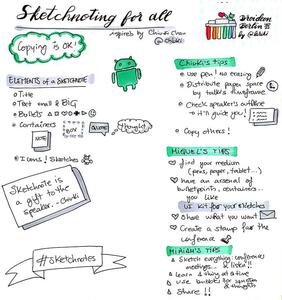 Sketchnoting for all
Inspired by Chiuki Chan
@chiuki
Droidcon
Berlin
by @
Copying is OK!
ELEMENTS of a SKETCHNOTE
Title
Text small & BIG
Bullets
Containers
BOX
QUOTE
Thought
Icons / Sketches
Sketchnote is
a gift to the
speaker - Chiuki
#sketchnotes
Chiuki's tips
Use pen! no erasing
Distribute paper space
by talk's timeframe
Check speaker's outline
it'll guide you!
Copy others!
MIQUEL'S TIPS
find your medium
(pens, paper, tablet...)
have an arsenal of
bulletpoints, containers...
you like
UI kit for your sketches
Share what you want
Create a stamp for the
conference
MIRIAM'S TIPS
Sketch everything: conference,
meetings... & listen!!
Learn 1 thing at a time
use bubbles for question
& thoughts
Share!!